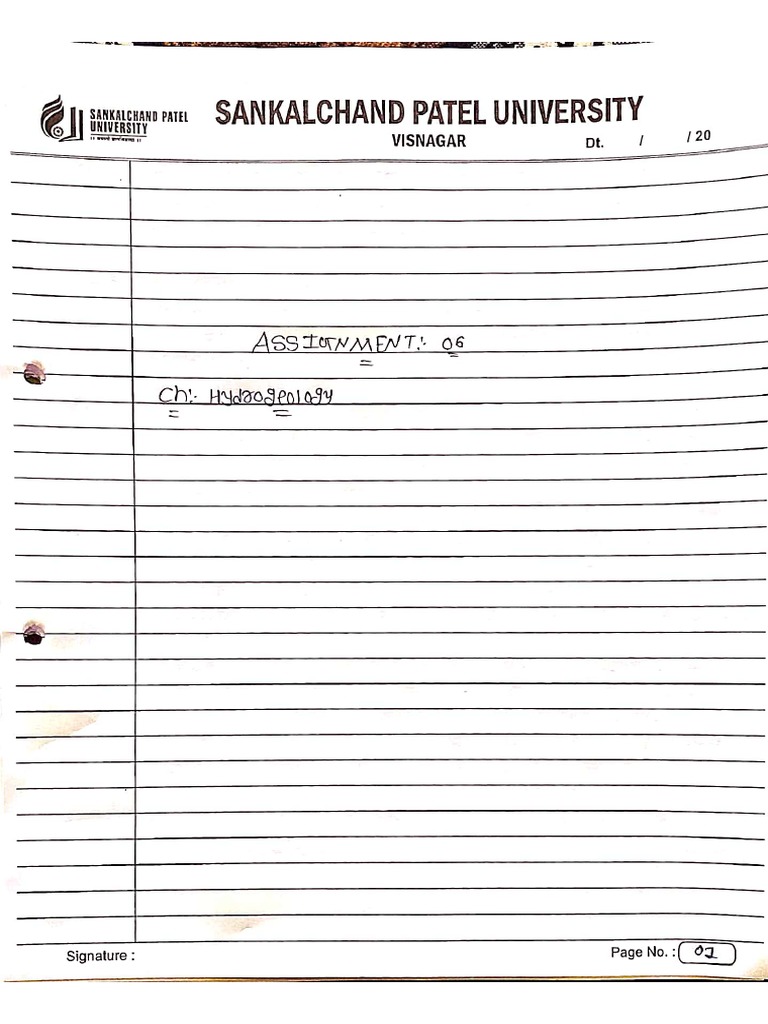 SANKALCHAND PATEL
UNIVERSITY
SANKALCHAND PATEL UNIVERSITY
VISNAGAR
Dt. / / 20
ASSIGNMENT:- 06
Ch:- Hydrogeology
Signature :
Page No. : 01